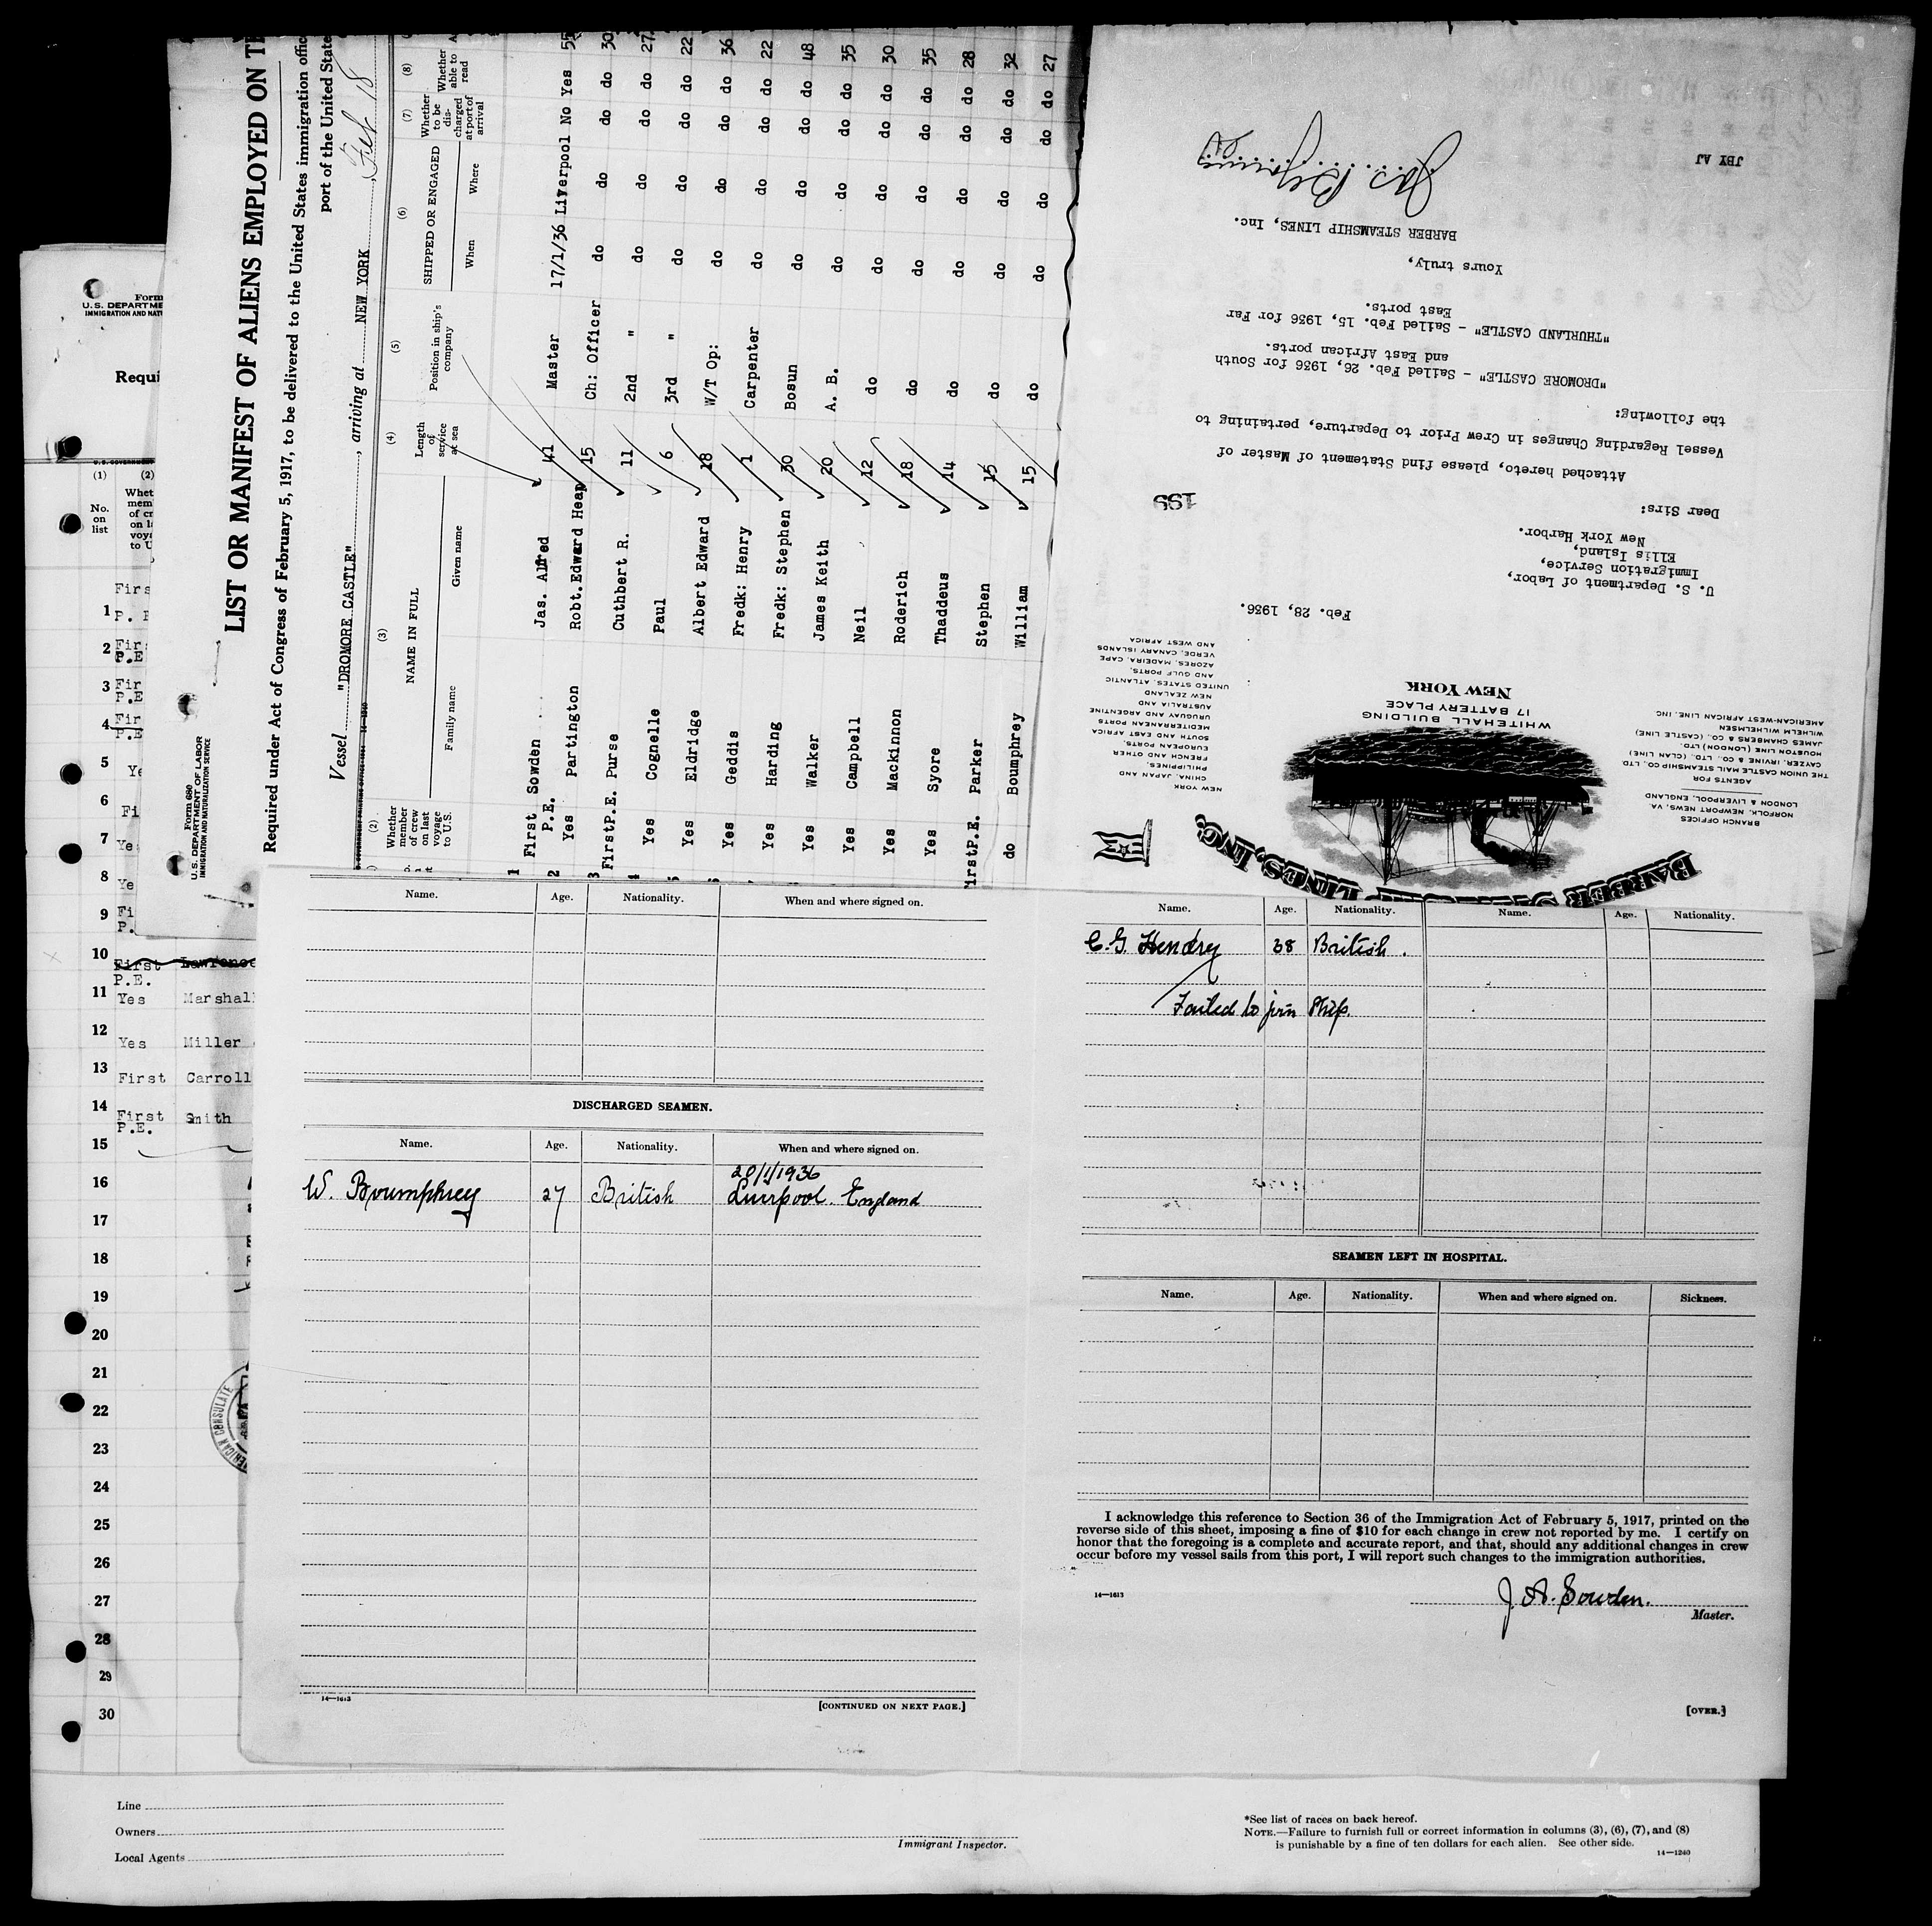 Form
U.S. DEPARTME
IMMIGRATION AND NAT
Requi
(1) (2)
No. on list
Whet
mem
of cr
on la
voya
to U
Firs
1 P. E
2 Fir
P.E
3 Fir
P.E
4 Fir
P.E
5 Ye
6 Fi
7 Ye
8 Ye
9 Fi
P.
10 First Lawrence
P.E.
11 Yes Marshal
12 Yes Miller
13 First Carroll
14 First Smith
P.E.
15
16
17
18
19
20
21
22
23
24
25
26
27
28
29
30
ERICAN CONSULATE
Line
Owners
Local Agents
Immigrant Inspector.
*See list of races on back hereof.
NOTE.—Failure to furnish full or correct information in columns (3), (6), (7), and (8)
is punishable by a fine of ten dollars for each alien. See other side.
14—1240
Form 680
U. S. DEPARTMENT OF LABOR
IMMIGRATION AND NATURALIZATION SERVICE
LIST OR MANIFEST OF ALIENS EMPLOYED ON TH
Required under Act of Congress of February 5, 1917, to be delivered to the United States immigration offic
port of the United State
Vessel "DROMORE CASTLE", arriving at NEW YORK, Feb 18
14—1240
(2) (3) (4) (5) (6) (7) (8)
Whether member of crew on last voyage to U.S.
NAME IN FULL
Family name Given name
Length of service at sea
Position in ship's company
SHIPPED OR ENGAGED
When Where
Whether to be discharged at port of arrival
Whether able to read
1 First P.E. Sowden Jas. Alfred 41 Master 17/1/36 Liverpool No Yes 55
2 Yes Partington Robt. Edward Heap 15 Ch: Officer do do do do 30
3 First P.E. Purse Cuthbert R. 11 2nd " do do do do 27
4 Yes Cognelle Paul 6 3rd " do do do do 22
5 Yes Eldridge Albert Edward 18 W/T Op: do do do do 36
Yes Geddis Fredk: Henry 1 Carpenter do do do do 22
Yes Harding Fredk: Stephen 30 Bosun do do do do 48
Yes Walker James Keith 20 A. B. do do do do 35
Yes Campbell Neil 12 do do do do do 30
Yes Mackinnon Roderich 18 do do do do do 35
Yes Syore Thaddeus 14 do do do do do 28
irst P.E. Parker Stephen 15 do do do do do 32
do Boumphrey William 15 do do do do do 27
BARBER STEAMSHIP LINES, INC.
BRANCH OFFICES
NORFOLK, NEWPORT NEWS, VA.
LONDON & LIVERPOOL, ENGLAND
AGENTS FOR
THE UNION CASTLE MAIL STEAMSHIP CO., LTD
CAYZER, IRVINE & CO., LTD. (CLAN LINE)
HOUSTON LINE (LONDON) LTD.
JAMES CHAMBERS & CO., (CASTLE LINE)
WILHELM WILHELMSEN
AMERICAN-WEST AFRICAN LINE, INC
NEW YORK
CHINA, JAPAN AND
PHILIPPINES,
FRENCH AND OTHER
EUROPEAN PORTS,
SOUTH AND EAST AFRICA
MEDITERRANEAN PORTS
URUGUAY AND ARGENTINE
AUSTRALIA AND
NEW ZEALAND
UNITED STATES, ATLANTIC
AND GULF PORTS,
AZORES, MADEIRA, CAPE
VERDE, CANARY ISLANDS
AND WEST AFRICA
WHITEHALL BUILDING
17 BATTERY PLACE
NEW YORK
Feb. 28, 1936.
U. S. Department of Labor,
Immigration Service,
Ellis Island,
New York Harbor.
Dear Sirs:
199
Attached hereto, please find Statement of Master of
Vessel Regarding Changes in Crew Prior to Departure, pertaining to
the following:
"DROMORE CASTLE" - Sailed Feb. 26, 1936 for South
and East African ports.
"THURLAND CASTLE" - Sailed Feb. 15, 1936 for Far
East ports.
Yours truly,
BARBER STEAMSHIP LINES, Inc.
JBY AJ
Name. Age. Nationality. When and where signed on.
DISCHARGED SEAMEN.
Name. Age. Nationality. When and where signed on.
20/1/1936
W. Boumphrey 27 British Liverpool. England
14—1613
[CONTINUED ON NEXT PAGE.]
Name. Age. Nationality. Name. Age. Nationality.
C. G. Hendry 38 British.
Failed to join Ship.
SEAMEN LEFT IN HOSPITAL.
Name. Age. Nationality. When and where signed on. Sickness.
I acknowledge this reference to Section 36 of the Immigration Act of February 5, 1917, printed on the
reverse side of this sheet, imposing a fine of $10 for each change in crew not reported by me. I certify on
honor that the foregoing is a complete and accurate report, and that, should any additional changes in crew
occur before my vessel sails from this port, I will report such changes to the immigration authorities.
14—1613
J. A. Sowden.
Master.
[OVER.]